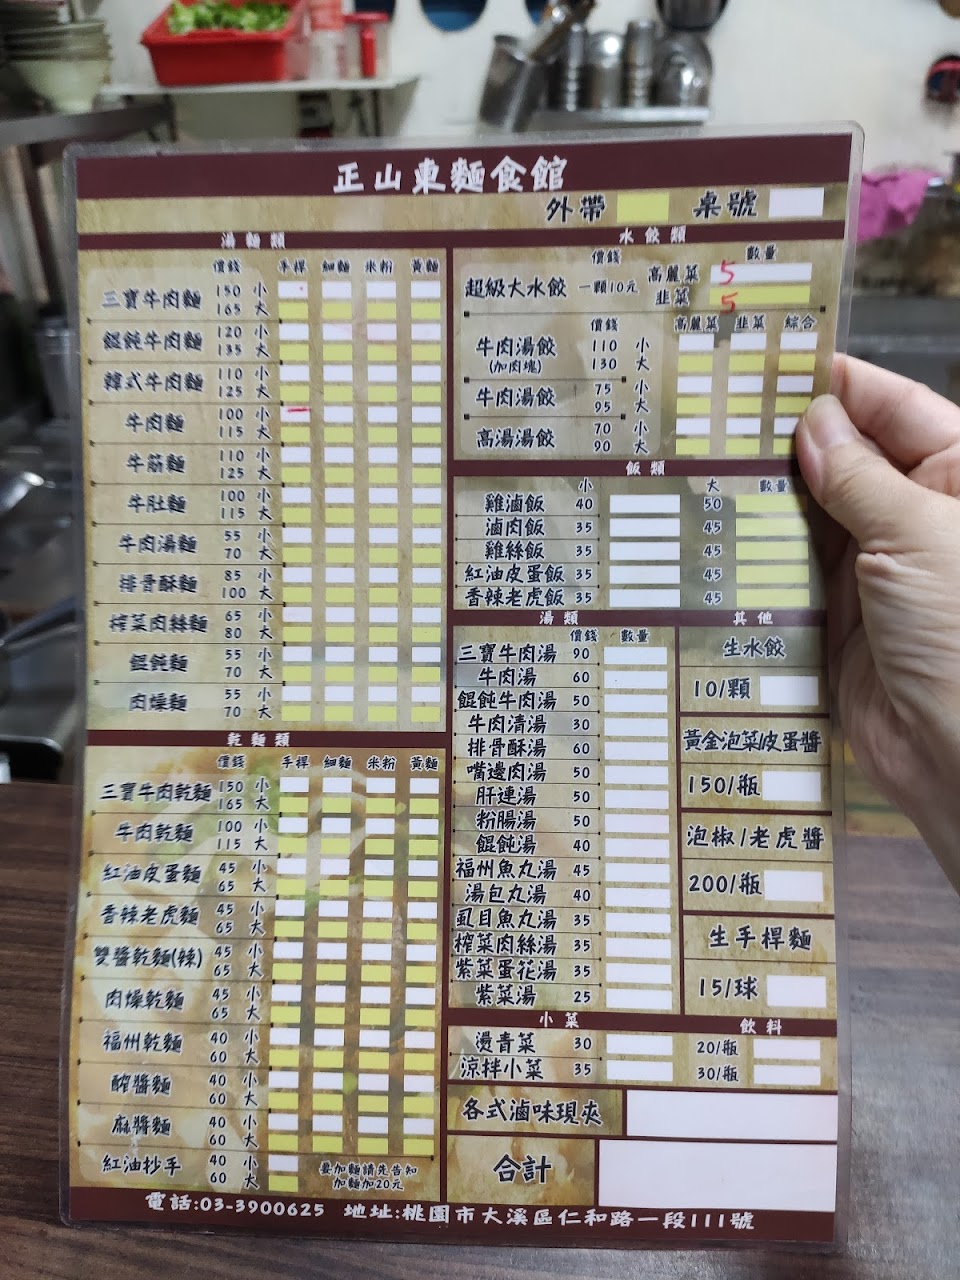 正山東麵食館
外帶 桌號
湯麵類
價錢 手桿 細麵 米粉 黃麵
三寶牛肉麵 150 小
165 大
餛飩牛肉麵 120 小
135 大
韓式牛肉麵 110 小
125 大
牛肉麵 100 小
115 大
牛筋麵 110 小
125 大
牛肚麵 100 小
115 大
牛肉湯麵 55 小
70 大
排骨酥麵 85 小
100 大
榨菜肉絲麵 65 小
80 大
餛飩麵 55 小
70 大
肉燥麵 55 小
70 大
乾麵類
價錢 手桿 細麵 米粉 黃麵
三寶牛肉乾麵 150 小
165 大
牛肉乾麵 100 小
115 大
紅油皮蛋麵 45 小
65 大
香辣老虎麵 45 小
65 大
雙醬乾麵(辣) 45 小
65 大
肉燥乾麵 45 小
65 大
福州乾麵 40 小
60 大
酢醬麵 40 小
60 大
麻醬麵 40 小
60 大
紅油抄手 40 小
60 大
要加麵請先告知
加麵加20元
水餃類
價錢 數量
超級大水餃 一顆10元 高麗菜 5
韭菜 5
價錢 高麗菜 韭菜 綜合
牛肉湯餃 110 小
(加肉塊) 130 大
牛肉湯餃 75 小
95 大
高湯湯餃 70 小
90 大
飯類
小 大 數量
雞滷飯 40 50
滷肉飯 35 45
雞絲飯 35 45
紅油皮蛋飯 35 45
香辣老虎飯 35 45
湯類
價錢 數量
三寶牛肉湯 90
牛肉湯 60
餛飩牛肉湯 50
牛肉清湯 30
排骨酥湯 60
嘴邊肉湯 50
肝連湯 50
粉腸湯 50
餛飩湯 40
福州魚丸湯 45
湯包丸湯 40
虱目魚丸湯 35
榨菜肉絲湯 35
紫菜蛋花湯 35
紫菜湯 25
其他
生水餃
10/顆
黃金泡菜/皮蛋醬
150/瓶
泡椒/老虎醬
200/瓶
生手桿麵
15/球
小菜
燙青菜 30
涼拌小菜 35
飲料
20/瓶
30/瓶
各式滷味現夾
合計
電話:03-3900625 地址:桃園市大溪區仁和路一段111號